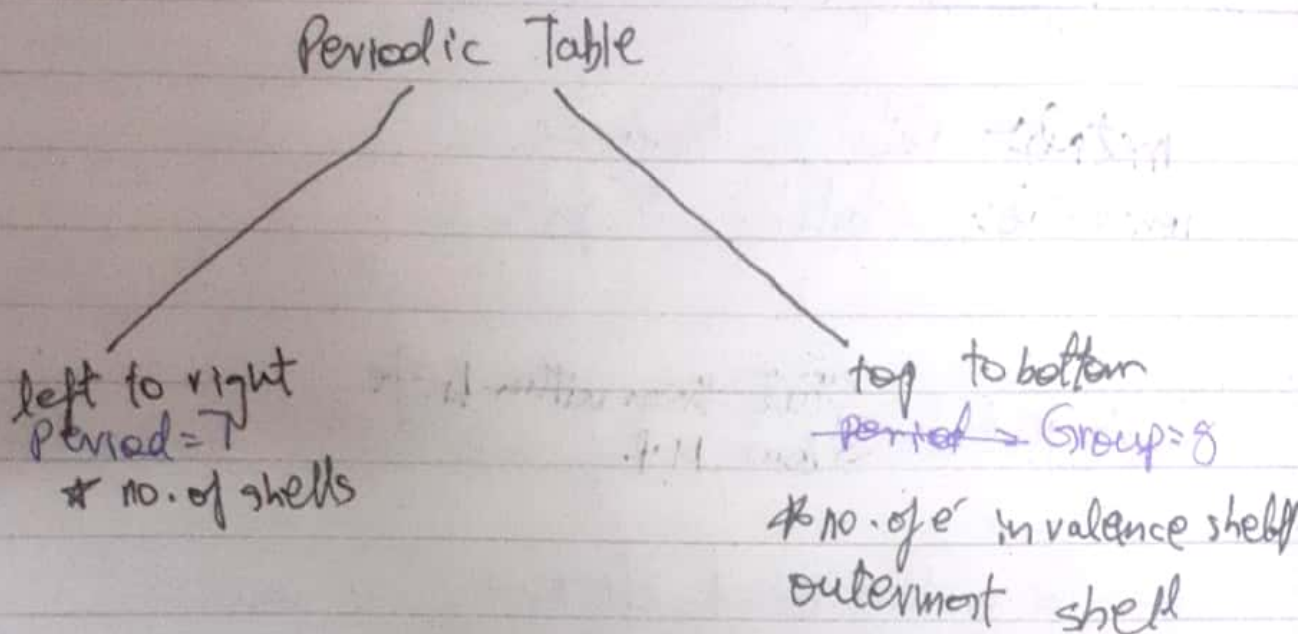 Periodic Table
left to right
Period = 7
* no. of shells
top to bottom
period = Group = 8
* no. of e⁻ in valence shell
outermost shell